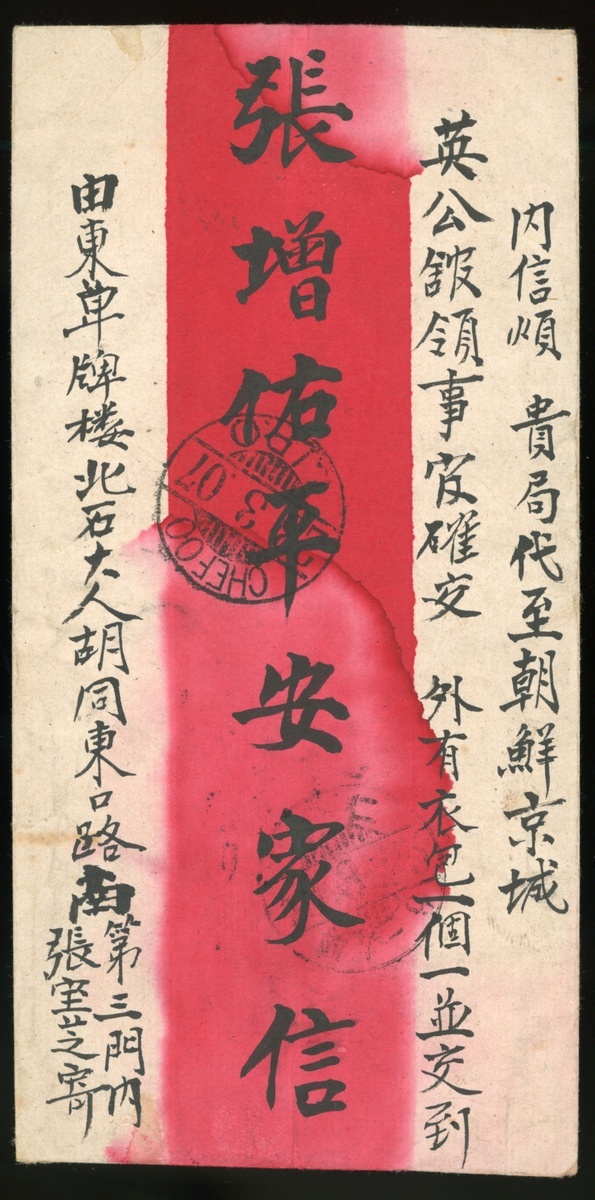 內信煩 貴局代至朝鮮京城
英公館領事官確交 外有衣包一個一並交到
張增佑平安家信
由東單牌楼北石大人胡同東口路南第三門內
張寶芝寄
CHEFOO
3 07